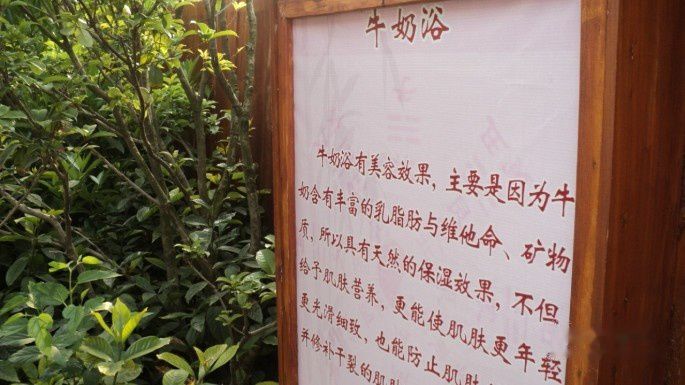 牛奶浴
牛奶浴有美容效果，主要是因为牛
奶含有丰富的乳脂肪与维他命、矿物
质，所以具有天然的保湿效果，不但
给予肌肤营养，更能使肌肤更年轻
更光滑细致，也能防止肌肤
并修补干裂的肌肤